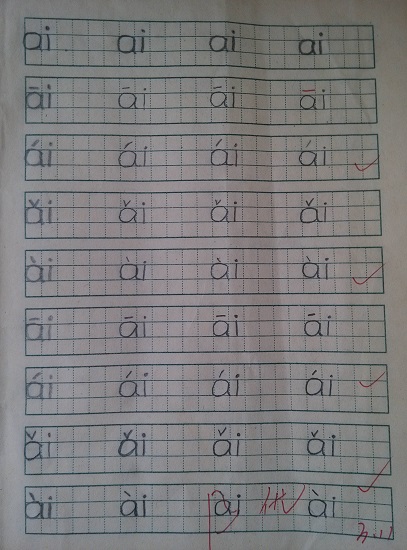 ai ai ai ai
āi āi āi āi
ái ái ái ái
ǎi ǎi ǎi ǎi
ài ài ài ài
āi āi āi āi
ái ái ái ái
ǎi ǎi ǎi ǎi
ài ài ài ài